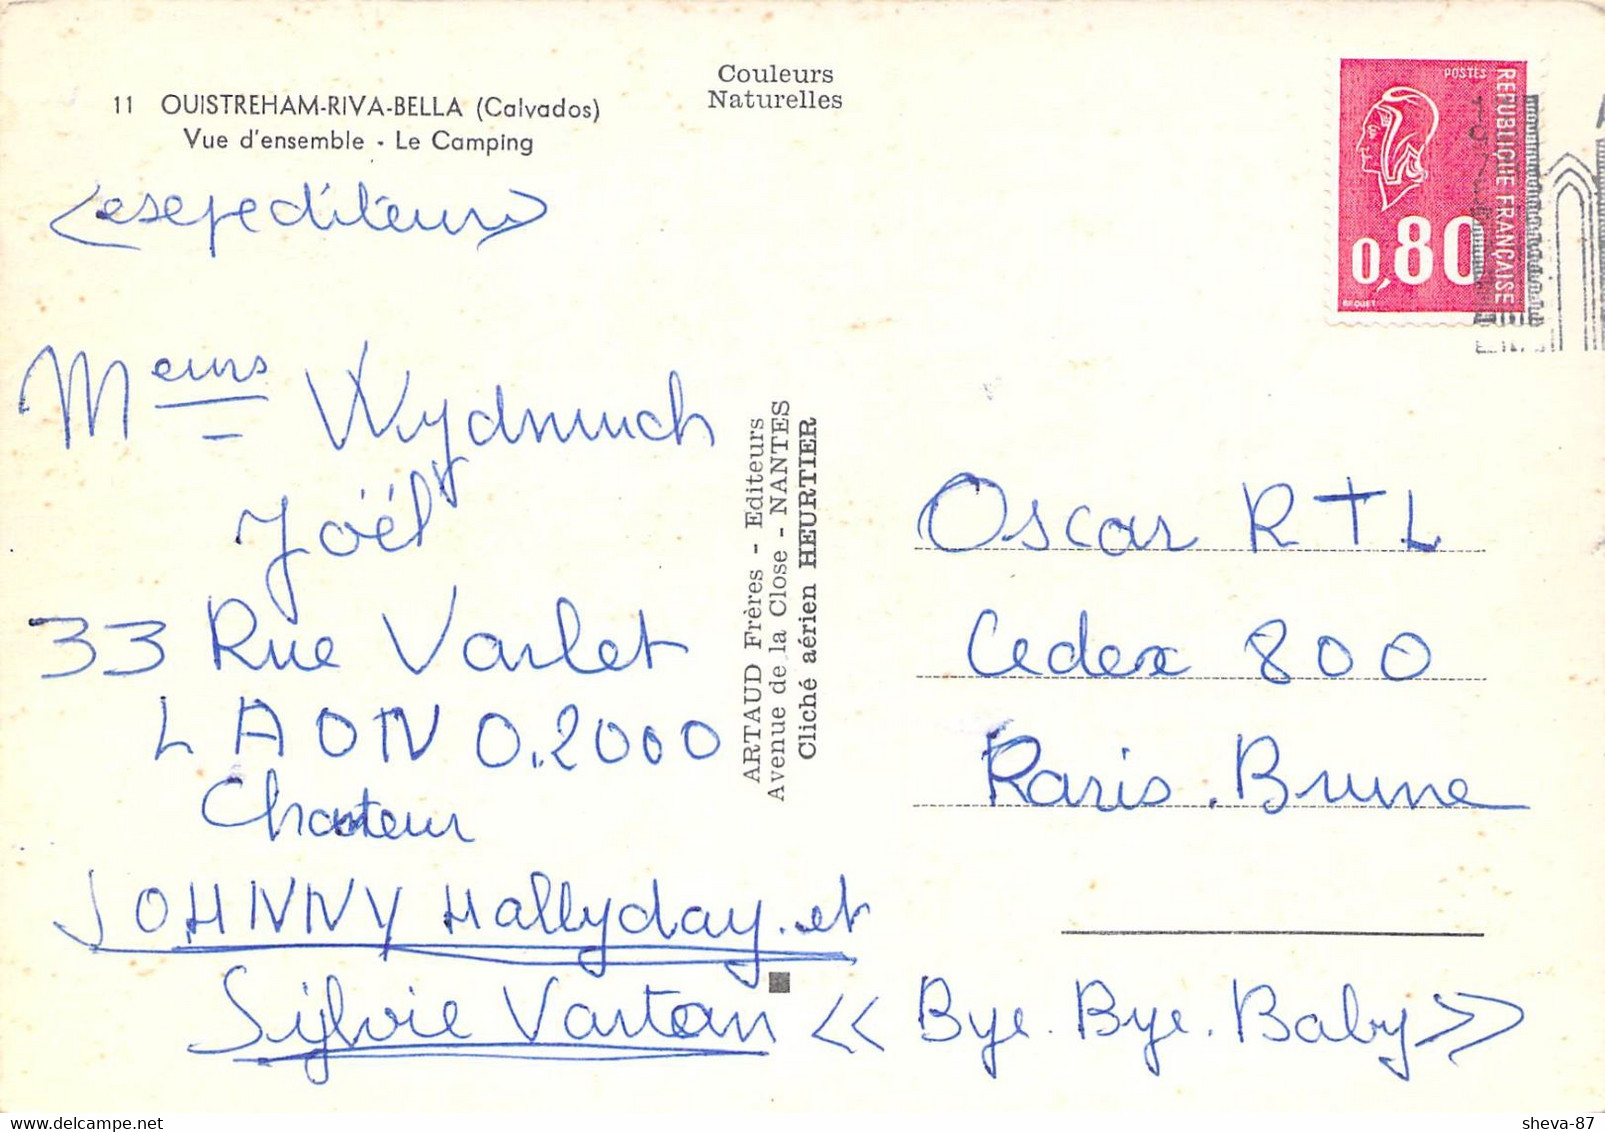 11 OUISTREHAM-RIVA-BELLA (Calvados)
Vue d'ensemble - Le Camping
Couleurs
Naturelles
POSTES
REPUBLIQUE FRANÇAISE
0,80
BEQUET
<esepediteur>
Meurs Wydmuch
Joël
33 Rue Varlet
LAON 0.2000
Chanteur
JOHNNY Hallyday. et
Sylvie Vartan << Bye. Bye. Baby >>
ARTAUD Frères - Editeurs
Avenue de la Close - NANTES
Cliché aérien HEURTIER
Oscar RTL
Cedex 800
Paris. Brune
sheva-87